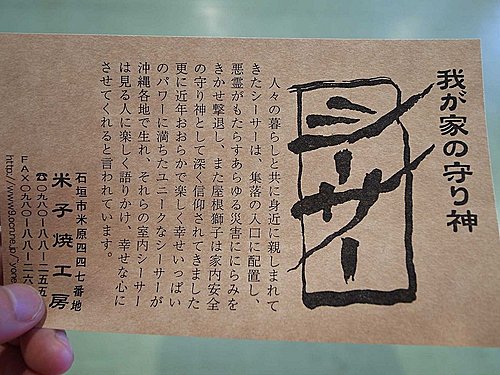 我が家の守り神
シーサー
人々の暮らしと共に身近に親しまれて
きたシーサーは、集落の入口に配置し、
悪霊がもたらすあらゆる災害ににらみを
きかせ撃退し、また屋根獅子は家内安全
の守り神として深く信仰されてきました
更に近年おおらかで楽しく幸せいっぱい
のパワーに満ちたユニークなシーサーが
沖縄各地で生れ、それらの室内シーサー
は見る人に楽しく語りかけ、幸せな心に
させてくれると言われています。
石垣市米原四四七番地
米子焼工房
☎〇九八〇ー八八ー二五五
FAX〇九八〇ー八八ー二六
http://www9.ocn.ne.jp/~yone